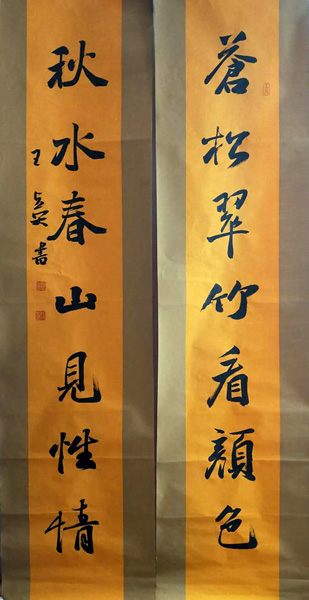 蒼松翠竹看顏色
秋水春山見性情